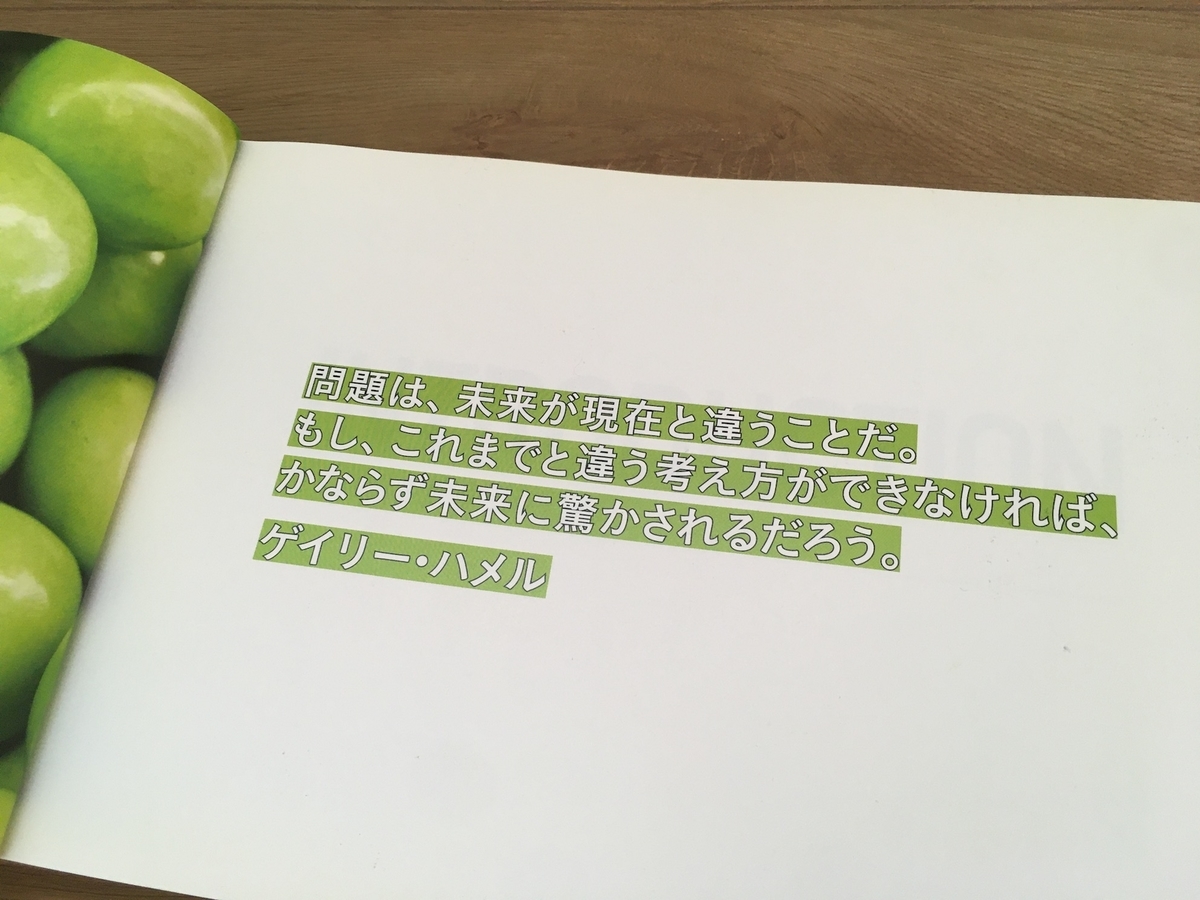 問題は、未来が現在と違うことだ。
もし、これまでと違う考え方ができなければ、
かならず未来に驚かされるだろう。
ゲイリー・ハメル